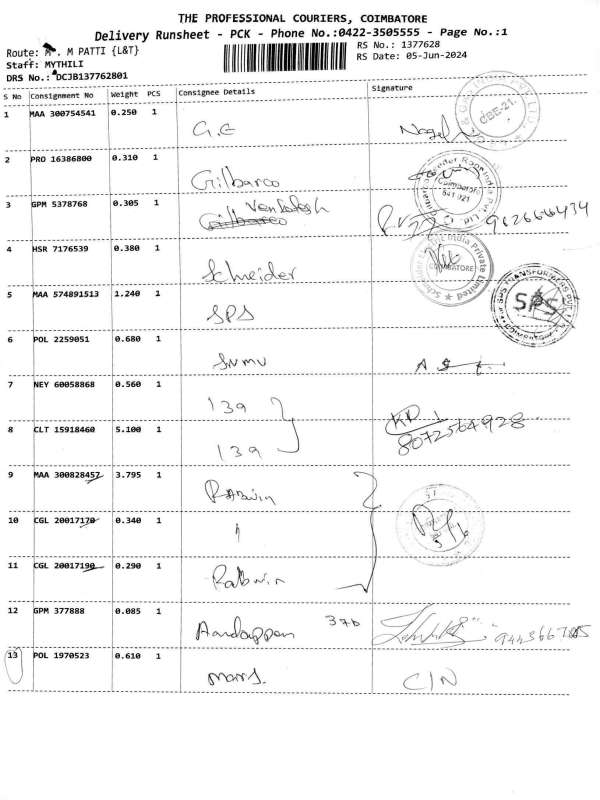 THE PROFESSIONAL COURIERS, COIMBATORE
Delivery Runsheet - PCK - Phone No.:0422-3505555 - Page No.:1
Route: M PATTI {L&T}
RS No.: 1377628
Staff: MYTHILI
RS Date: 05-Jun-2024
DRS No.: DCJB137762801
S No Consignment No Weight PCS Consignee Details Signature
1 MAA 300754541 0.250 1 G.E
2 PRO 16386800 0.310 1 Gilbarco
3 GPM 5378768 0.305 1 Venkatesh
Gilbarco
4 HSR 7176539 0.380 1 Schneider
COIMBATORE
5 MAA 574891513 1.240 1 SPS SPS
6 POL 2259051 0.680 1
7 NEY 60058868 0.560 1 139
8 CLT 15918460 5.100 1 139 8072564928
9 MAA 300828457 3.795 1
10 CGL 20017170 0.340 1
11 CGL 20017190 0.290 1
12 GPM 377888 0.085 1 37b
13 POL 1970523 0.610 1 C/N